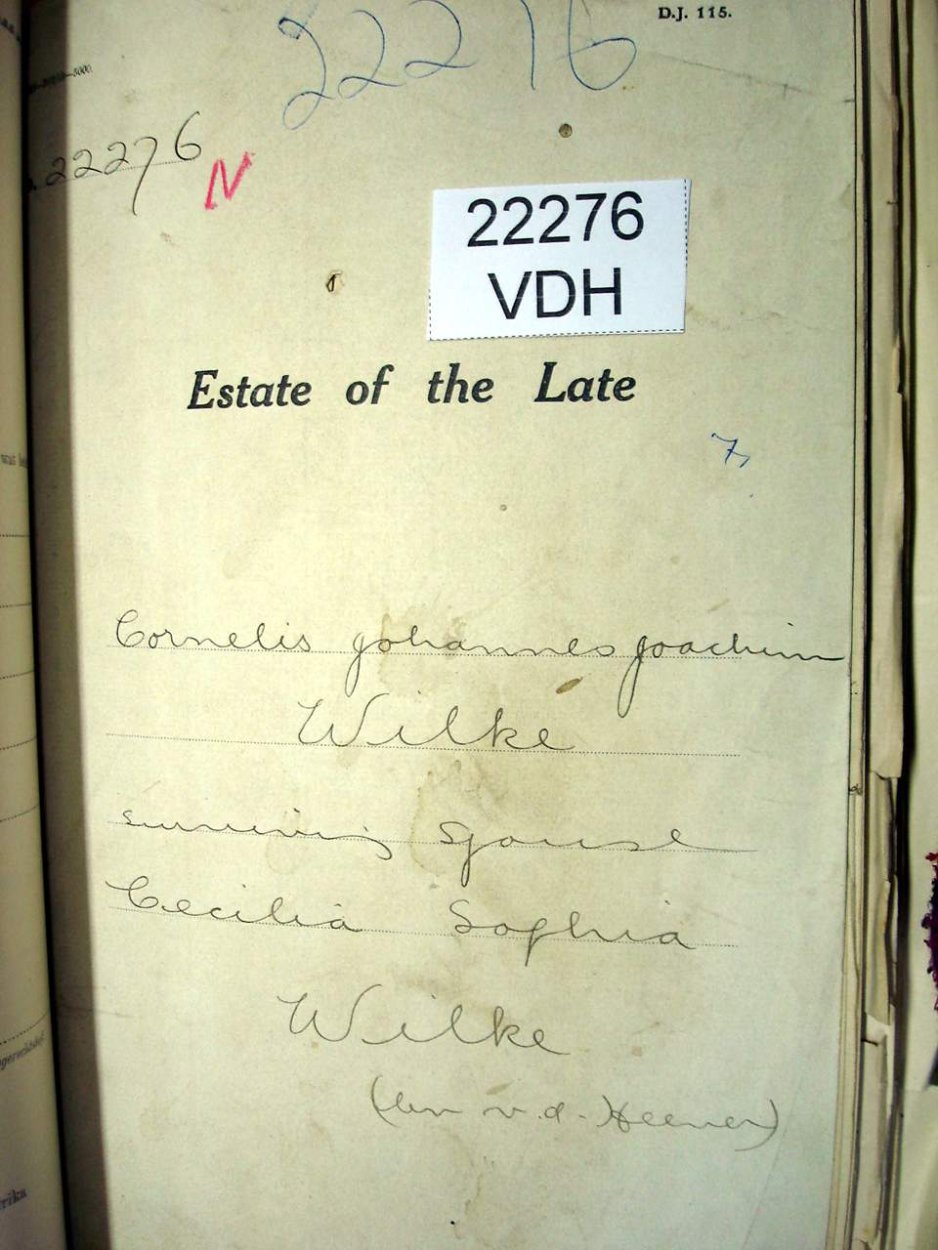 D.J. 115.
22276
22276
N
22276
VDH
Estate of the Late
7,
Cornelis Johannes Joachim
Wilke
surviving spouse
Cecilia Sophia
Wilke
v.d. Heever)
rika